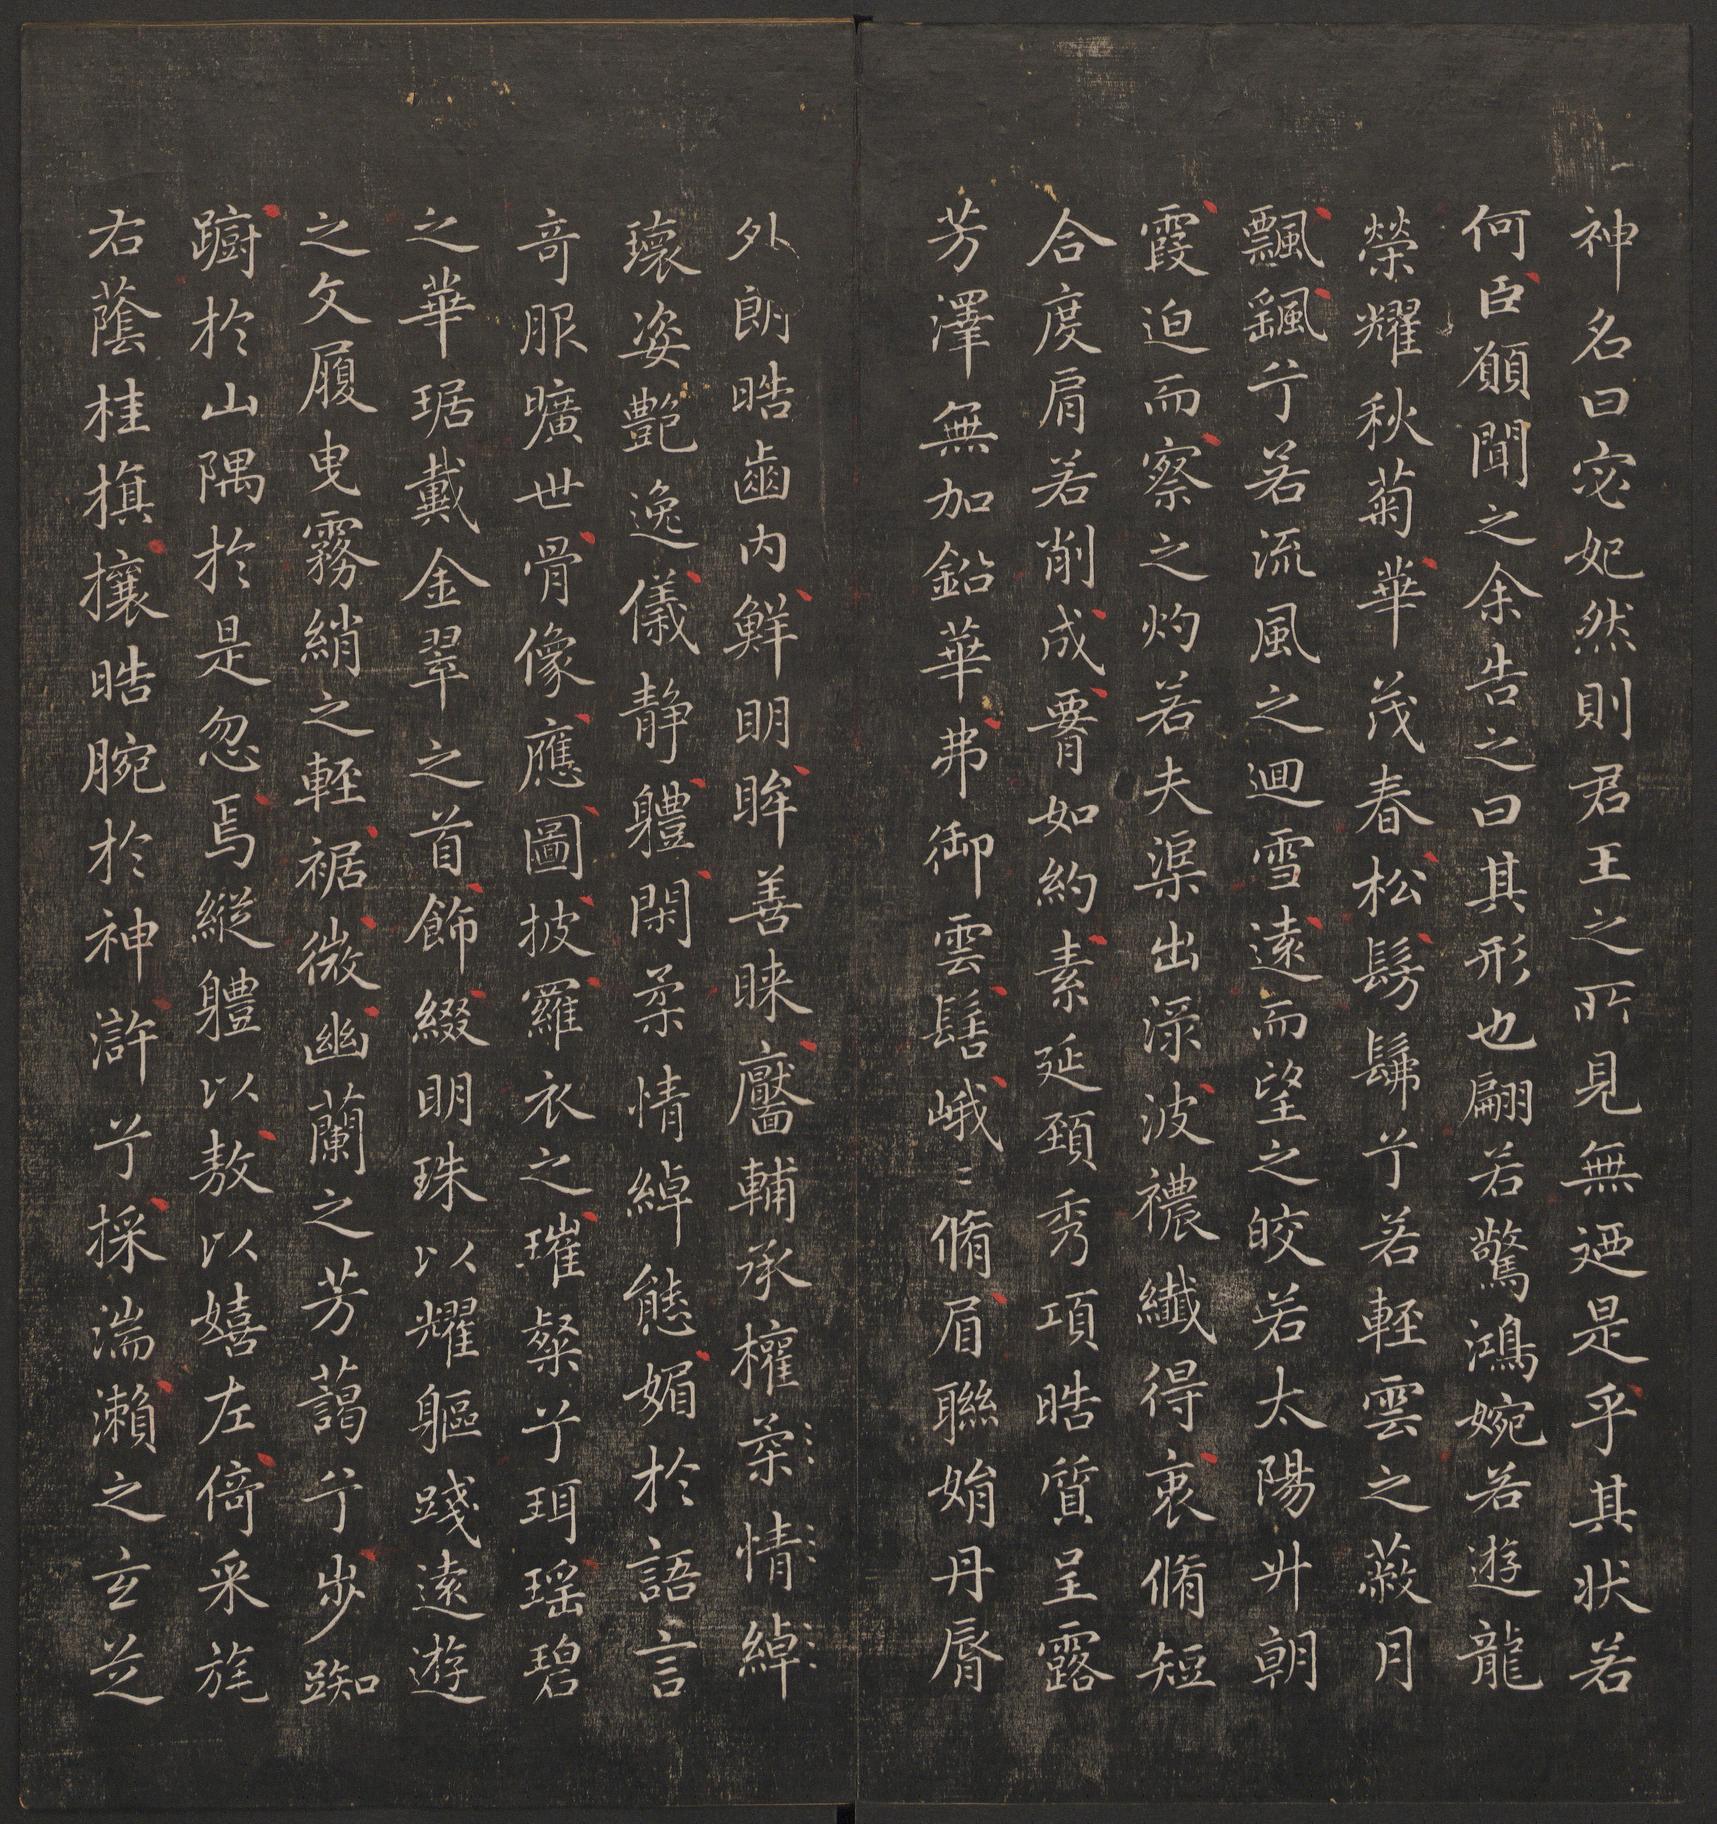 神名曰宓妃然則君王之所見無迺是乎其狀若
何臣願聞之余告之曰其形也翩若驚鴻婉若遊龍
榮耀秋菊華茂春松髣髴兮若輕雲之蔽月
飄颻兮若流風之迴雪遠而望之皎若太陽升朝
霞迫而察之灼若夫渠出淥波襛纖得衷脩短
合度肩若削成䙅如約素延頸秀項皓質呈露
芳澤無加鉛華弗御雲髻峨〻脩眉聯娟丹脣
外朗皓齒內鮮明眸善睞靨輔承權柔情綽
瓌姿艷逸儀靜軆閑柔情綽態媚於語言
奇服曠世骨像應圖披羅衣之璀粲兮珥瑶碧
之華琚戴金翠之首飾綴明珠以耀軀踐遠遊
之文履曳霧綃之輕裾微幽蘭之芳藹兮步踟
躕於山隅於是忽焉縱軆以敖以嬉左倚采旄
右蔭桂旗攘皓腕於神滸兮採湍瀨之玄芝